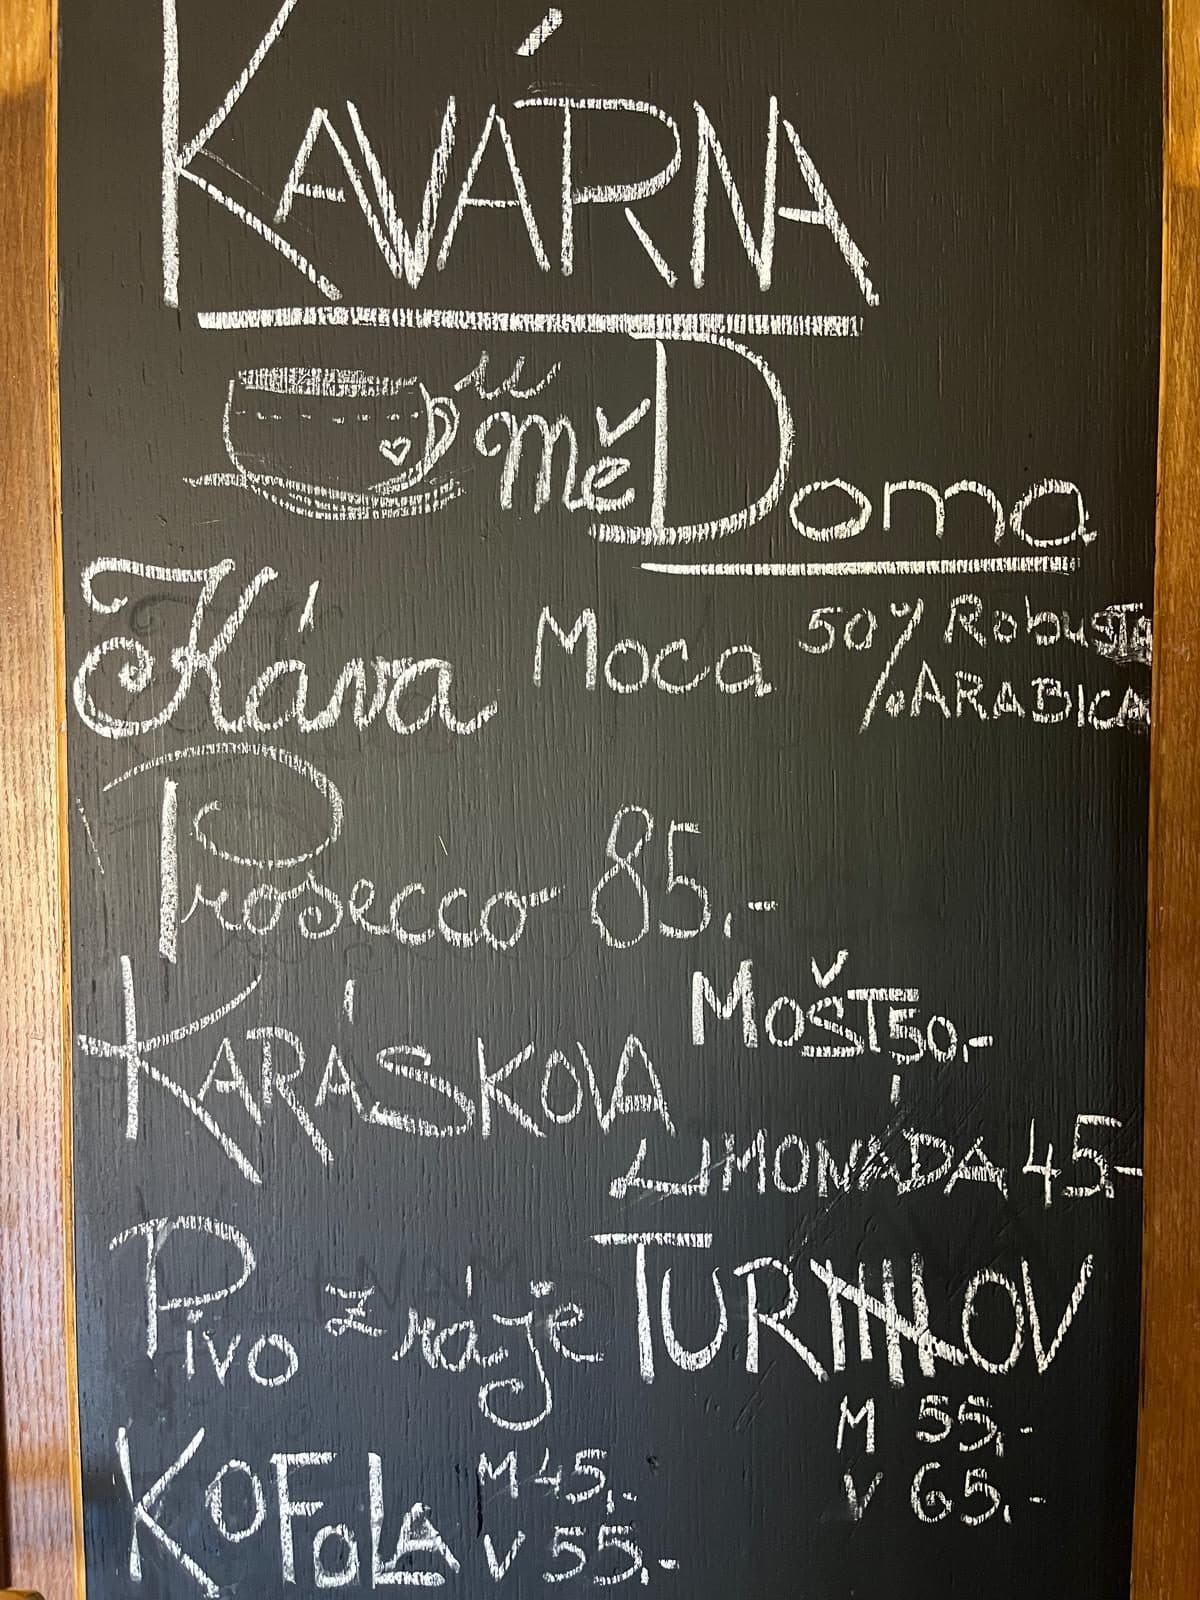 KAVÁRNA
u
mě Doma
Káva Moca 50% Robusta
% ARABICA
Prosecco 85,-
KARÁSKOVA MOŠT 50,-
LIMONÁDA 45,-
Pivo z ráje
M 55,-
V 65,-
KOFOLA M 45,-
V 55,-